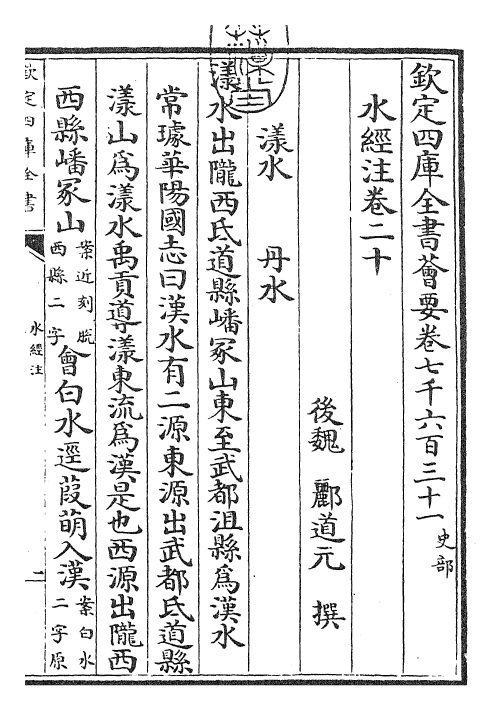 欽定四庫全書薈要卷七千六百三十一 史部
水經注卷二十
後魏 酈道元 撰
漾水 丹水
漾水出隴西氐道縣嶓冢山東至武都沮縣爲漢水
常璩華陽國志曰漢水有二源東源出武都氐道縣
漾山爲漾水禹貢導漾東流爲漢是也西源出隴西
西縣嶓冢山案近刻脫西縣二字會白水逕葭萌入漢案白水二字原
欽定四庫全書
水經注